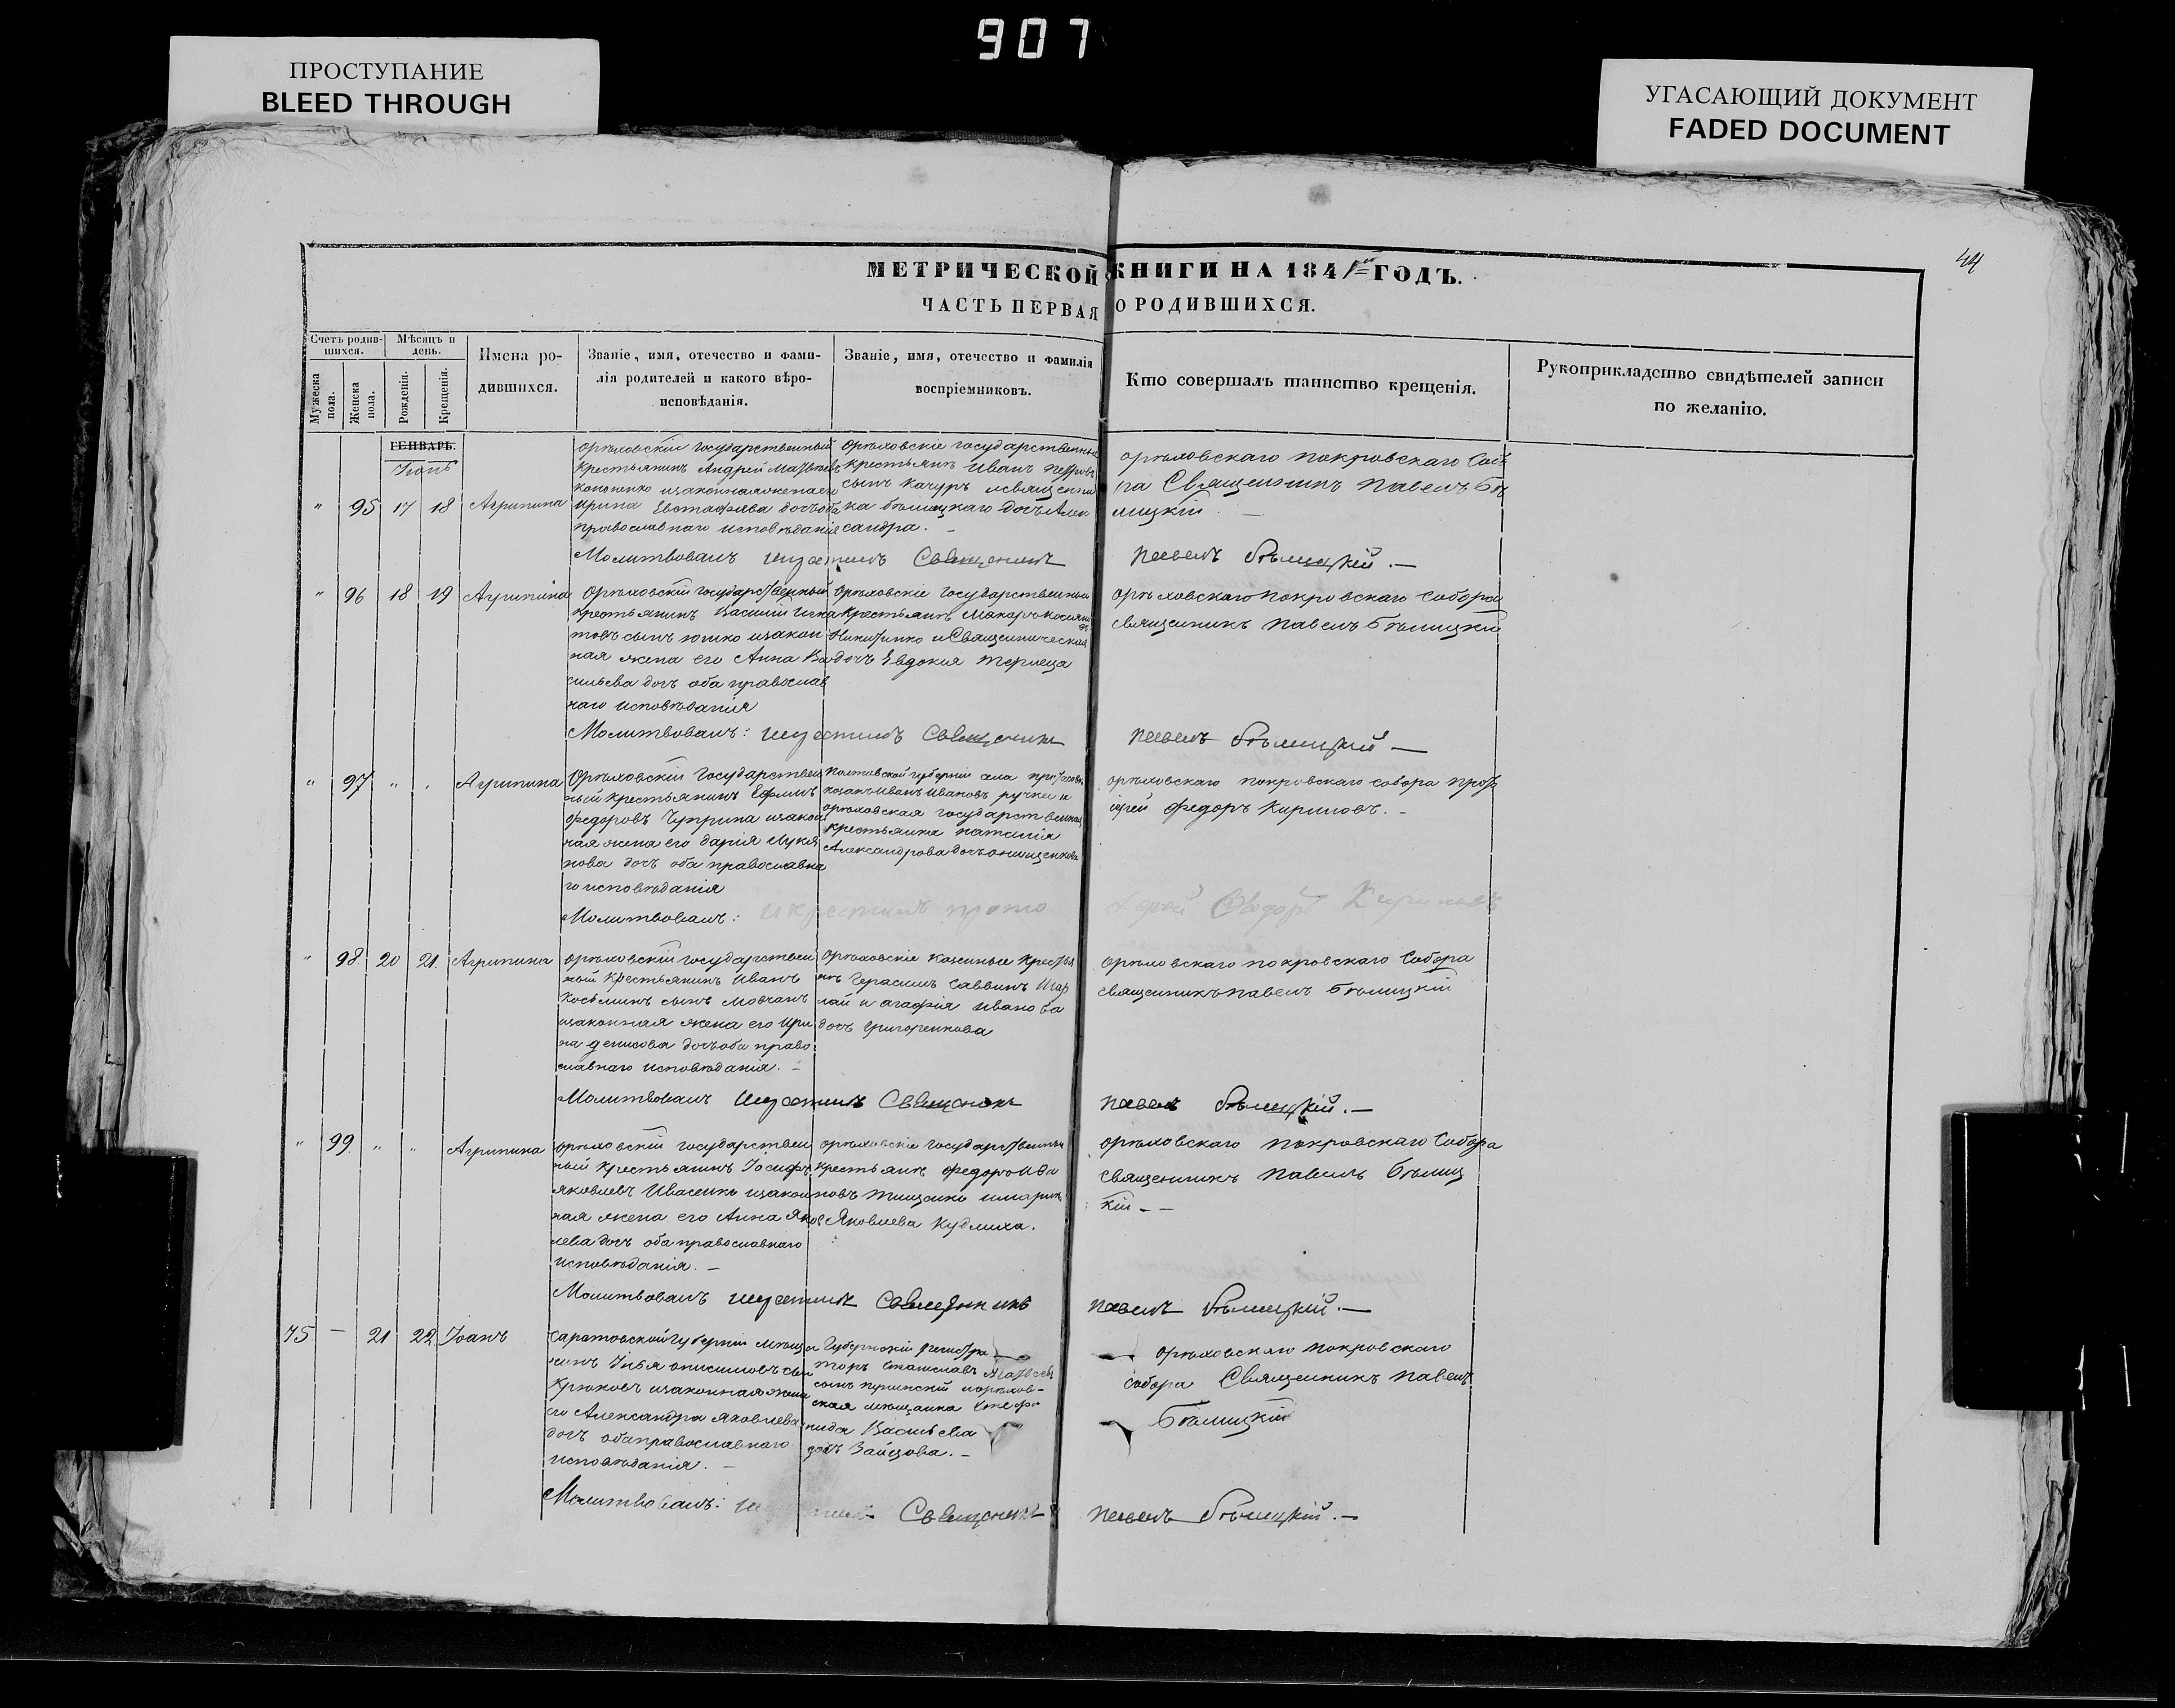 907
ПРОСТУПАНИЕ
BLEED THROUGH
УГАСАЮЩИЙ ДОКУМЕНТ
FADED DOCUMENT
44
МЕТРИЧЕСКОЙ КНИГИ НА 1841 ГОДЪ.
ЧАСТЬ ПЕРВАЯ О РОДИВШИХСЯ.
Счетъ родив-
шихся.
Мужеска
пола.
Женска
пола.
Мѣсяцъ и
день.
Рожденія.
Крещенія.
Имена ро-
дившихся.
Званіе, имя, отечество и фами-
лія родителей и какого вѣро-
исповѣданія.
Званіе, имя, отечество и фамилія
воспріемниковъ.
Кто совершалъ таинство крещенія.
Рукоприкладство свидѣтелей записи
по желанію.
ГЕНВАРЬ.
Іюнь
" 95 17 18 Агрипина
орѣховскій государственный
крестьянинъ Андрей
кононенко изаконная жена его
ирина дочь оба
православнаго исповѣданія
орѣховскіе государственные
крестьяне Иванъ Петровъ
сынъ качуръ и священни
ка бѣлицкаго дочь Алек
сандра. –
орѣховскаго покровскаго Собо
ра Священникъ Павелъ Бѣ
лицкій. –
Молитвовалъ икрестилъ Священникъ Павелъ Бѣлицкій. –
" 96 18 19 Агрипина
Орѣховскій государственный
крестьянинъ Василій Игна
товъ сынъ изакон
ная жена его Анна Ва
сильева дочь оба православ
наго исповѣданія
Орѣховскіе государственные
крестьяне Макаръ
Никитенко и Священническая
дочь Евдокия
орѣховскаго покровскаго собора
священникъ Павелъ Бѣлицкій
Молитвовалъ: икрестилъ Священникъ Павелъ Бѣлицкій –
" 97 " " Агрипина
Орѣховскій Государствен
ный крестьянинъ Ефимъ
федоровъ Чуприна изакон
ная жена его дарія Лукя
нова дочь оба православна
го исповѣданія
Полтавской губерніи села
козакъ Иванъ Ивановъ ручка и
орѣховская государственная
крестьянка наталія
Александрова дочь онищенкова
орѣховскаго покровскаго собора прото
іерей федоръ Кириловъ. –
Молитвовалъ: икрестилъ прото іерей Федоръ Кириловъ
" 98 20 21 Агрипина
орѣховскій государствен
ный крестьянинъ Иванъ
Косьминъ сынъ Мовчанъ
изаконная жена его Ири
на денисова дочь оба право
славнаго исповѣданія. –
Орѣховскіе казенные крестья
не Герасимъ Саввинъ Шар
лай и агафія иванова
дочь григоренкова
орѣховскаго покровскаго Собора
священникъ павелъ бѣлицкій
Молитвовалъ икрестилъ Священникъ Павелъ Бѣлицкій. –
" 99 " " Агрипина
орѣховскій государствен
ный крестьянинъ Іосифъ
яковлевъ Ивасенко изакон
ная жена его Анна Яков
лева дочь оба православнаго
исповѣданія. –
орѣховскіе государственные
крестьяне федоръ Ива
новъ тищенко
Яковлева Кудлиха.
орѣховскаго покровскаго Собора
священникъ павелъ бѣлиц
кій – –
Молитвовалъ икрестилъ Священникъ Павелъ Бѣлицкій. –
75 – 21 22 Іоанъ
Саратовской губерніи мѣща
нинъ Илья онисимовъ сынъ
Крюковъ изаконная жена
его Александра яковлева
дочь оба православнаго
исповѣданія. –
Губернскій регистра
торъ Станиславъ
сынъ и орѣхов-
ская мѣщанка
Васильева
дочь Зайцова. –
орѣховскаго покровскаго
собора Священникъ Павелъ
Бѣлицкій
Молитвовалъ: Священникъ Павелъ Бѣлицкій. –